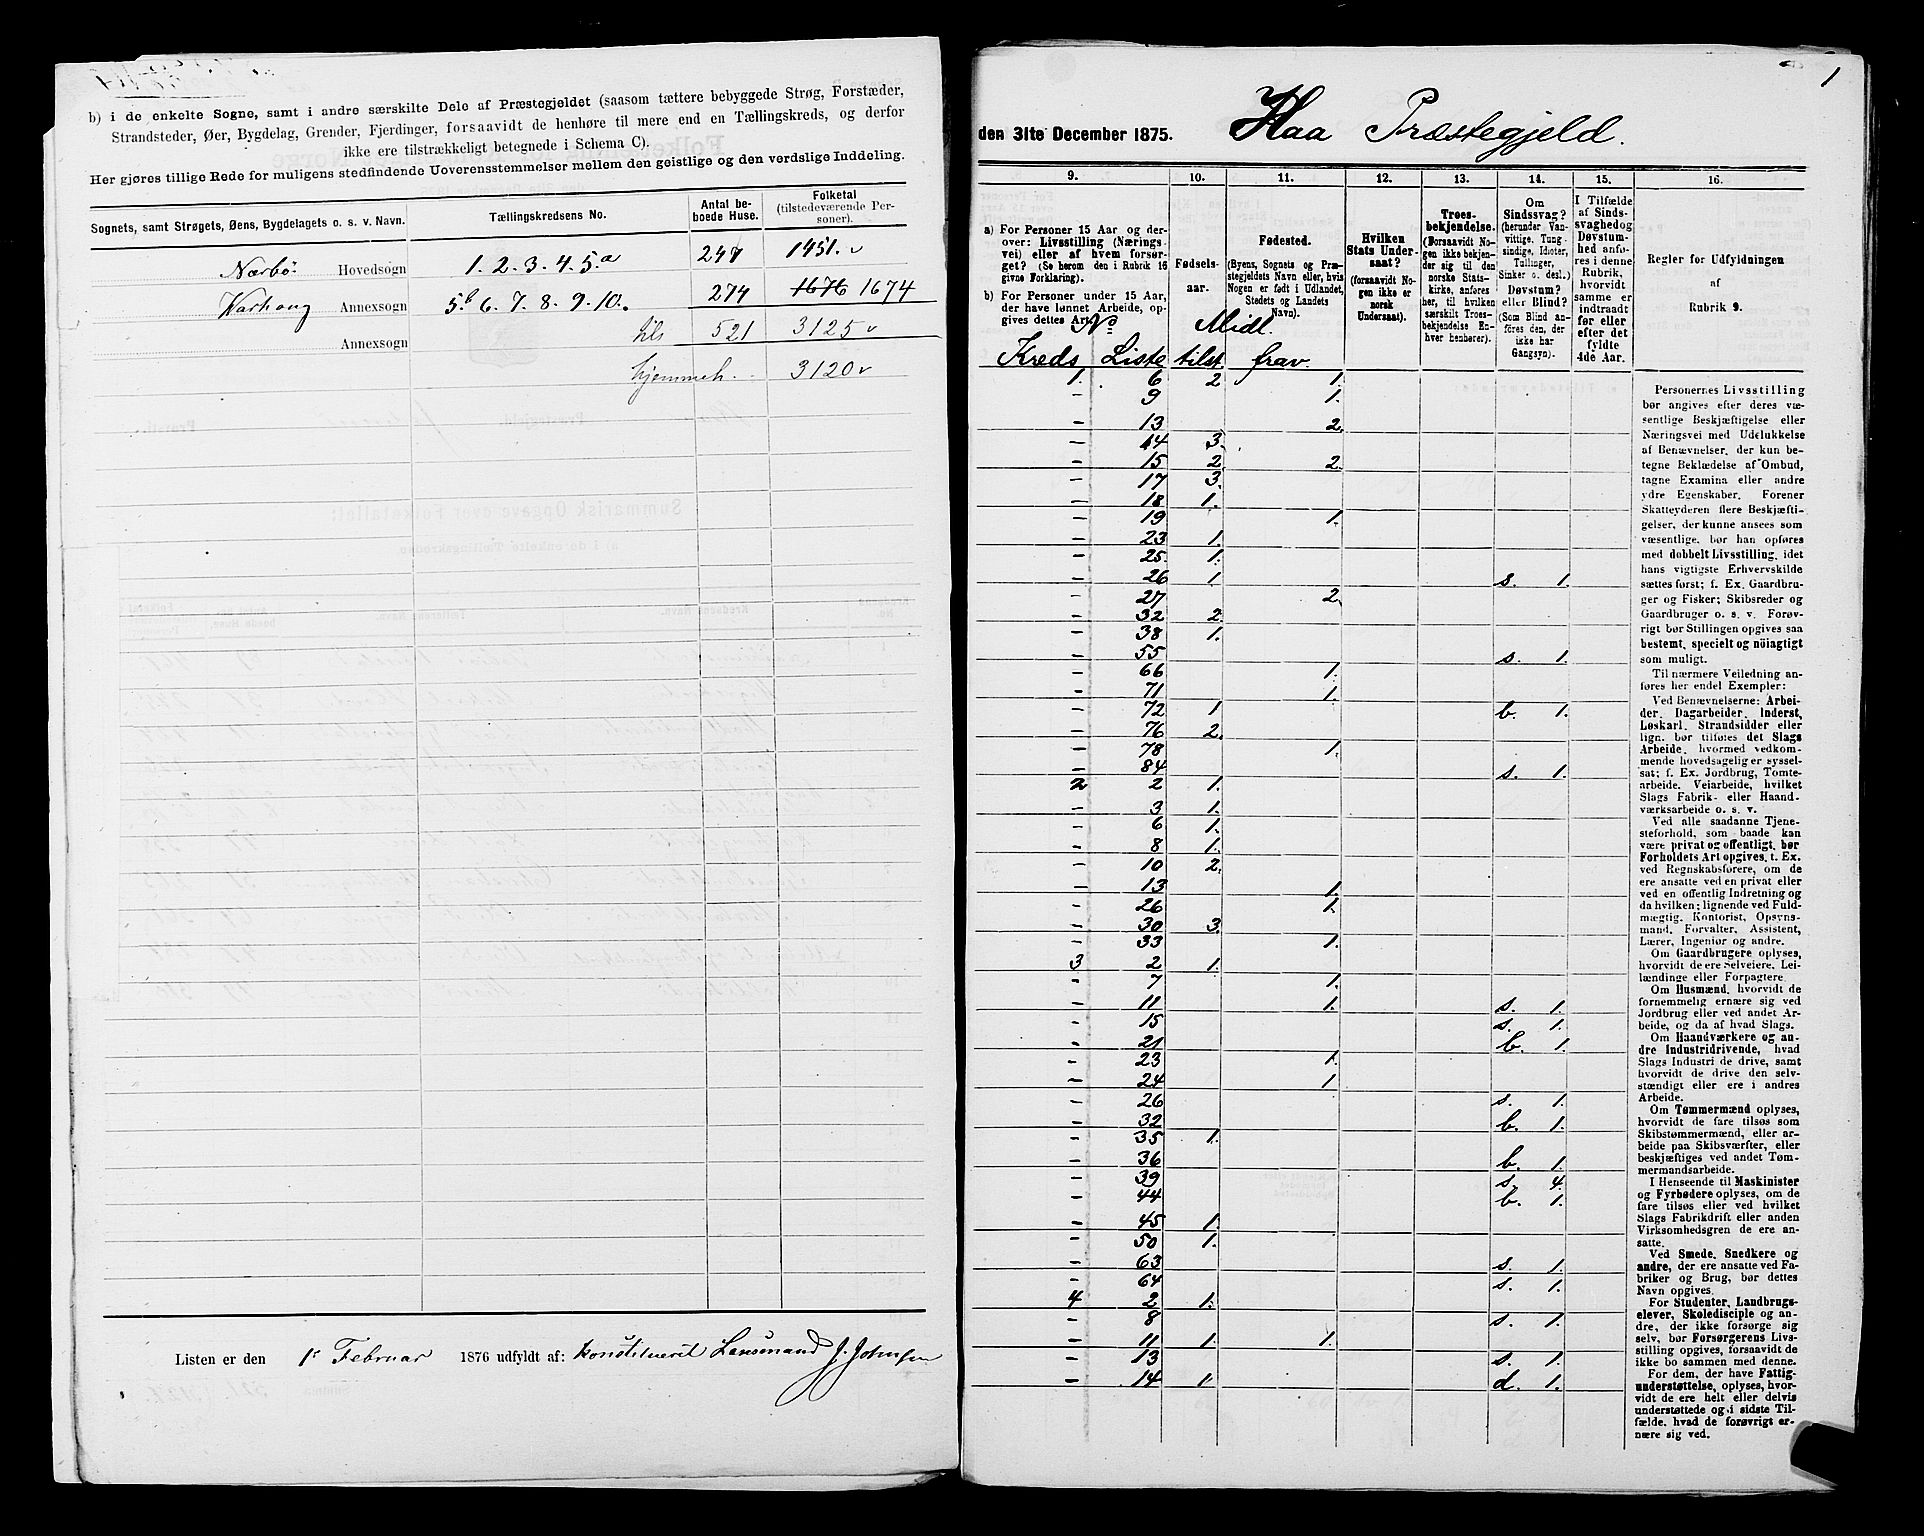 b) i de enkelte Sogne, samt i andre særskilte Dele af Præstegjeldet (saasom tættere bebyggede Strøg, Forstæder,
Strandsteder, Øer, Bygdelag, Grender, Fjerdinger, forsaavidt de henhøre til mere end en Tællingskreds, og derfor
ikke ere tilstrækkeligt betegnede i Schema C).
Her gjøres tillige Rede for muligens stedfindende Uoverensstemmelser mellem den geistlige og den verdslige Inddeling.
Sognets, samt Strøgets, Øens, Bygdelagets o. s. v. Navn. Tællingskredsens No. Antal beboede Huse. Folketal (tilstedeværende Personer).
Nærbö Hovedsogn 1. 2. 3. 4. 5.a 247 1451. v
Varhoug Annexsogn 5.b 6. 7. 8. 9. 10. 274 1676 1674
Annexsogn tils 521 3125 v
hjemmeh. 3120 v
Listen er den 1s Februar 1876 udfyldt af: konstitueret Lensmand J. Johnsen
1
den 31te December 1875. Haa Præstegjeld.
9. 10. 11. 12. 13. 14. 15. 16.
a) For Personer 15 Aar og derover: Livsstilling (Næringsvei) eller af hvem forsørget? (Se herom den i Rubrik 16 givne Forklaring).
b) For Personer under 15 Aar, der have lønnet Arbeide, opgives dettes Art.
Fødselsaar.
Fødested.
(Byens, Sognets og Præstegjeldets Navn eller, hvis Nogen er født i Udlandet, Stedets og Landets Navn).
Hvilken Stats Undersaat?
(forsaavidt Nogen ikke er norsk Undersaat).
Troesbekjendelse.
(Forsaavidt Nogen ikke bekjender sig til den norske Statskirke, anføres her, til hvilken særskilt Troesbekjendelse Enhver henhører).
Om Sindssvag? (herunder Vanvittige, Tungsindige, Idioter, Tullinger, Sinker o. desl.) Døvstum? eller Blind? (Som Blind anføres den, der ikke har Gangsyn).
I Tilfælde af Sindssvaghed og Døvstumhed anføres i denne Rubrik, hvorvidt samme er indtraadt før eller efter det fyldte 4de Aar.
Regler for Udfyldningen
af
Rubrik 9.
No Midl.
Kreds Liste tilst. frav.
1. 6 2 1.
- 9 1.
- 13 2.
- 14 3.
- 15 2. 2.
- 17 3.
- 18 1.
- 19 1.
- 23 1.
- 25. 1.
- 26 1. s. 1.
- 27 2.
- 32 2.
- 38 1.
- 55 s. 1.
- 66 1.
- 71 1.
- 72 1 b. 1.
- 76 2.
- 78 1.
- 84 s. 1.
2 2 1.
- 3 1.
- 6 1.
- 8 1.
- 10 2.
- 13 1.
- 26 1.
- 30 3.
- 33 1.
3 2 1.
- 7 1.
- 11 1. s. 1.
- 15 s. 1.
- 21 b. 1.
- 23 1.
- 24 1.
- 26 s. 1.
- 32 b. 1.
- 35 1.
- 36 b. 1.
- 39 s. 4.
- 44 b. 1.
- 45 1.
- 50 1.
- 63 s. 1.
- 64 s. 1.
4 2 1.
- 8 s. 1.
- 11 1. 1.
- 13 s. 1.
- 14 1. d. 1.
Personernes Livsstilling
bør angives efter deres væsentlige
Beskjæftigelse eller
Næringsvei med Udelukkelse
af Benævnelser, der kun betegne
Beklædelse af Ombud,
tagne Examina eller andre
ydre Egenskaber. Forener
Skatteyderen flere Beskjæftigelser,
der kunne ansees som
væsentlige, bør han opføres
med dobbelt Livsstilling, idet
hans vigtigste Erhvervskilde
sættes først; f. Ex. Gaardbruger
og Fisker; Skibsreder og
Gaardbruger o. s. v. Forøvrigt
bør Stillingen opgives saa
bestemt, specielt og nöiagtigt
som muligt.
Til nærmere Veiledning anføres
her endel Exempler:
Ved Benævnelserne: Arbeider,
Dagarbeider, Inderst,
Løskarl, Strandsidder eller
lign. bør tilføies det Slags
Arbeide, hvormed vedkommende
hovedsagelig er sysselsat;
f. Ex. Jordbrug, Tomtearbeide,
Veiarbeide, hvilket
Slags Fabrik- eller Haandværksarbeide
o. s. v.
Ved alle saadanne Tjenesteforhold,
som baade kan
være privat og offentligt, bør
Forholdets Art opgives, t. Ex.
ved Regnskabsførere, om de
ere ansatte ved en privat eller
ved en offentlig Indretning og
da hvilken; lignende ved Fuldmægtig,
Kontorist, Opsynsmand,
Forvalter, Assistent,
Lærer, Ingeniør og andre.
Om Gaardbrugere oplyses,
hvorvidt de ere Selveiere, Leilændinge
eller Forpagtere.
Om Husmænd, hvorvidt de
fornemmelig ernære sig ved
Jordbrug eller ved andet Arbeide,
og da af hvad Slags.
Om Haandværkere og andre
Industridrivende, hvad
Slags Industri de drive, samt
hvorvidt de drive den selvstændigt
eller ere i andres
Arbeide.
Om Tømmermænd oplyses,
hvorvidt de fare tilsøs som
Skibstømmermænd, eller arbeide
paa Skibsværfter, eller
beskjæftiges ved andet Tømmermandsarbeide.
I Henseende til Maskinister
og Fyrbødere oplyses, om de
fare tilsøs eller ved hvilket
Slags Fabrikdrift eller anden
Virksomhedsgren de ere ansatte.
Ved Smede, Snedkere og
andre, der ere ansatte ved Fabriker
og Brug, bør dettes
Navn opgives.
For Studenter, Landbrugselever,
Skoledisciple og andre,
der ikke forsørge sig
selv, bør Forsørgerens Livsstilling
opgives, forsaavidt de
ikke bo sammen med denne.
For dem, der have Fattigunderstøttelse,
oplyses, hvorvidt
de ere helt eller delvis
understøttede og i sidste Tilfælde,
hvad de forøvrigt ernære
sig ved.